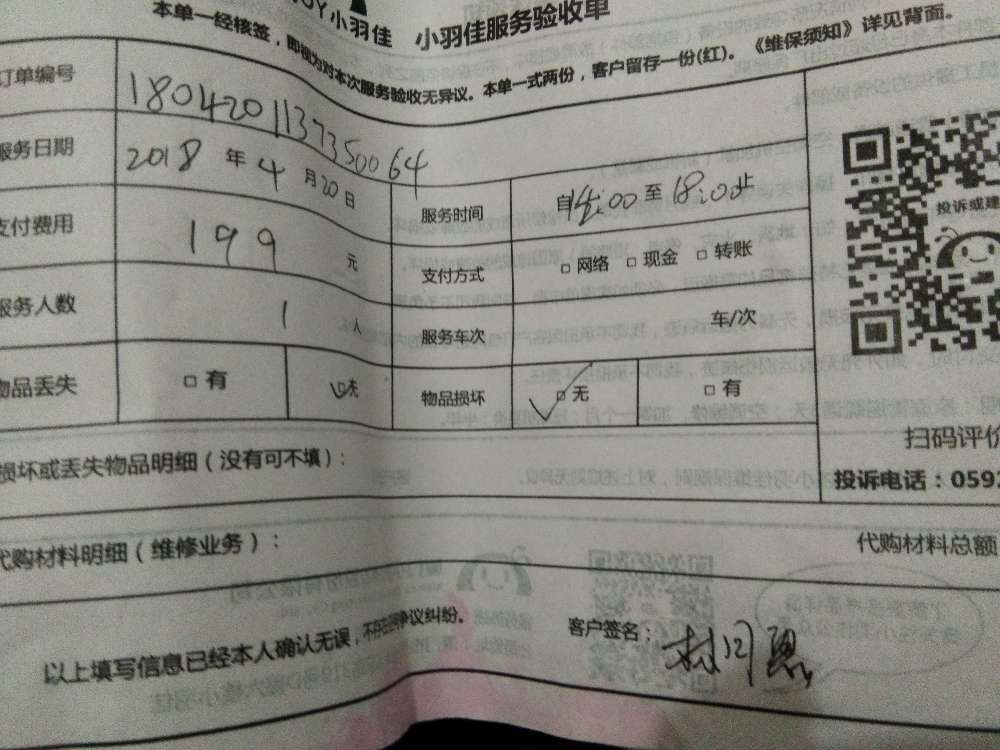 小羽佳 小羽佳服务验收单
本单一经核签，即视为对本次服务验收无异议。本单一式两份，客户留存一份(红)。《维保须知》详见背面。
订单编号 1804201137350064
服务日期 2018 年 4 月 20 日 服务时间 至 18:00 止
支付费用 199 元 支付方式 □ 网络 □ 现金 □ 转账
服务人数 1 人 服务车次 车/次
物品丢失 □ 有 □ 无 物品损坏 □ 无 □ 有
投诉或建
扫码评价
损坏或丢失物品明细（没有可不填）：
投诉电话：0592
代购材料明细（维修业务）： 代购材料总额
以上填写信息已经本人确认无误，不存在任何争议纠纷。 客户签名：